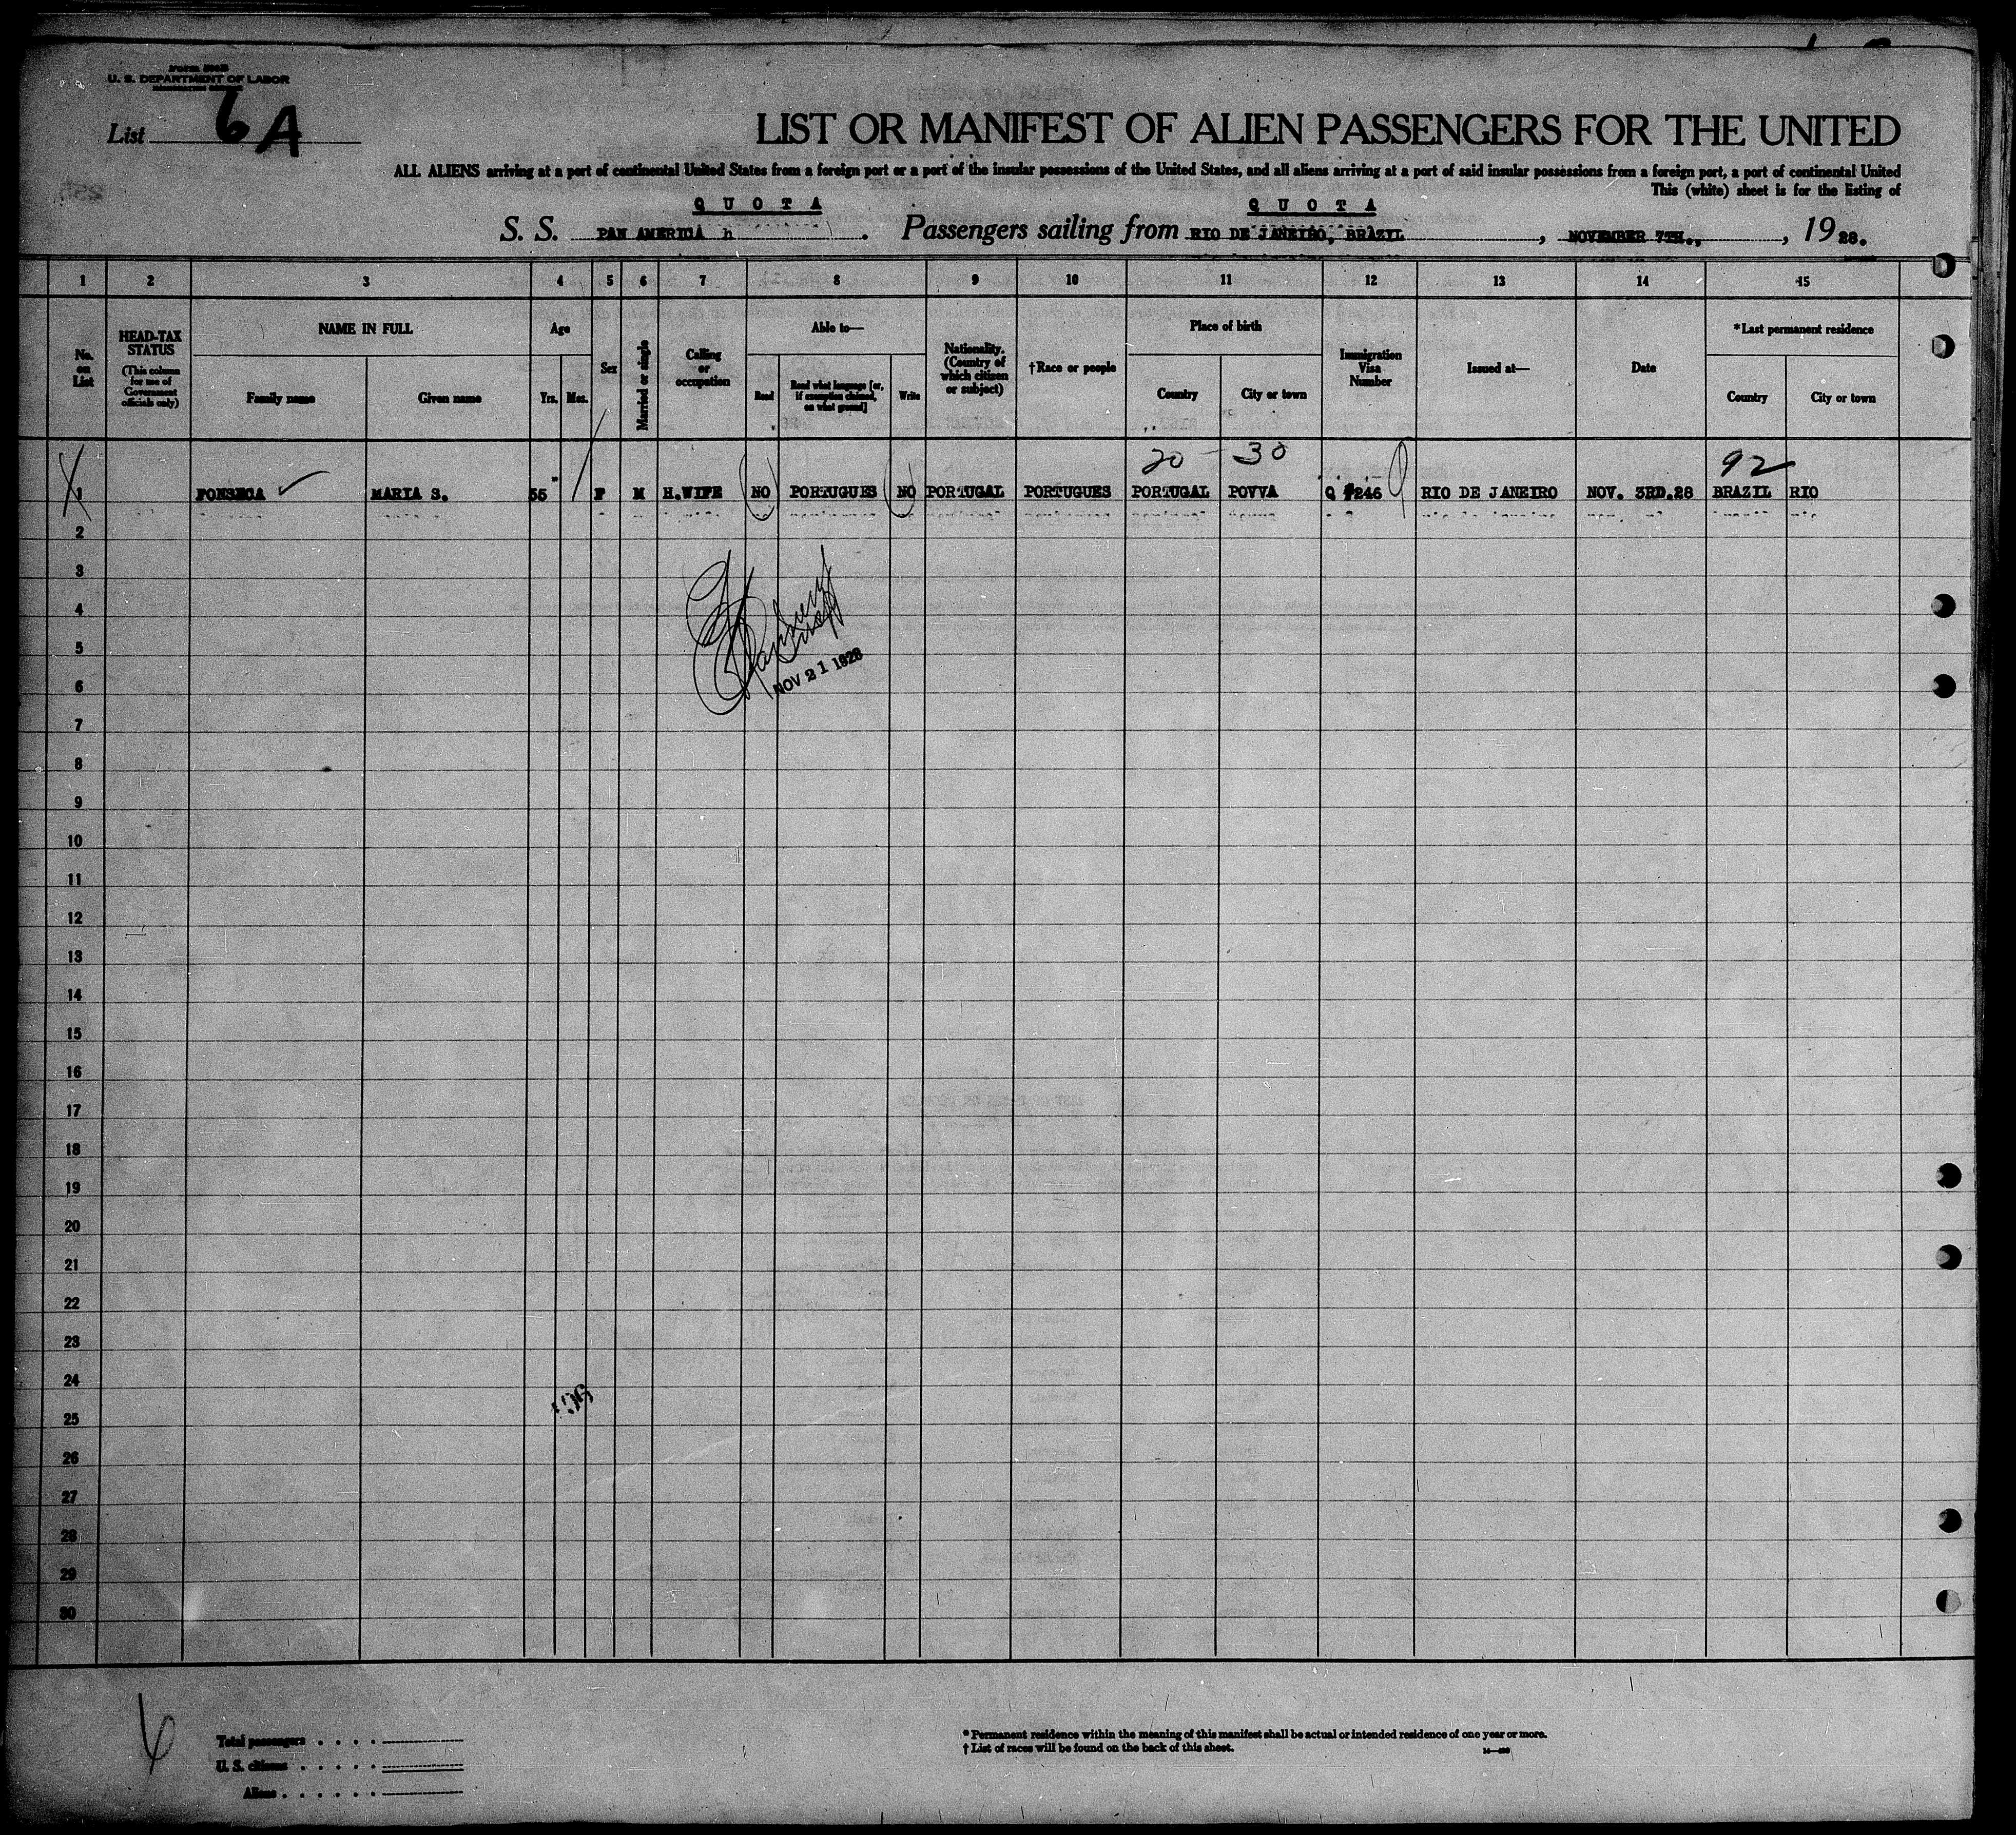 U. S. DEPARTMENT OF LABOR
List 6A
LIST OR MANIFEST OF ALIEN PASSENGERS FOR THE UNITED
ALL ALIENS arriving at a port of continental United States from a foreign port or a port of the insular possessions of the United States, and all aliens arriving at a port of said insular possessions from a foreign port, a port of continental United
This (white) sheet is for the listing of
QUOTA QUOTA
S. S. PAN AMERICA. Passengers sailing from RIO DE JANEIRO, BRAZIL, NOVEMBER 7TH., 1928.
1 2 3 4 5 6 7 8 9 10 11 12 13 14 15
No. on List
HEAD-TAX STATUS
(This column for use of Government officials only)
NAME IN FULL
Family name
Given name
Age
Yrs.
Mos.
Sex
Married or single
Calling or occupation
Able to—
Read
Read what language [or, if exemption claimed, on what ground]
Write
Nationality. (Country of which citizen or subject)
†Race or people
Place of birth
Country
City or town
Immigration Visa Number
Issued at—
Date
*Last permanent residence
Country
City or town
20 - 30 92
1 FONSECA MARIA S. 55 F M H.WIFE NO PORTUGUES NO PORTUGAL PORTUGUES PORTUGAL POVVA Q #246 RIO DE JANEIRO NOV. 3RD.28 BRAZIL RIO
2
3
4
5
NOV 21 1928
6
7
8
9
10
11
12
13
14
15
16
17
18
19
20
21
22
23
24
25
26
27
28
29
30
6
Total passengers . . . .
U. S. citizens . . . . .
Aliens . . . . . .
* Permanent residence within the meaning of this manifest shall be actual or intended residence of one year or more.
† List of races will be found on the back of this sheet.